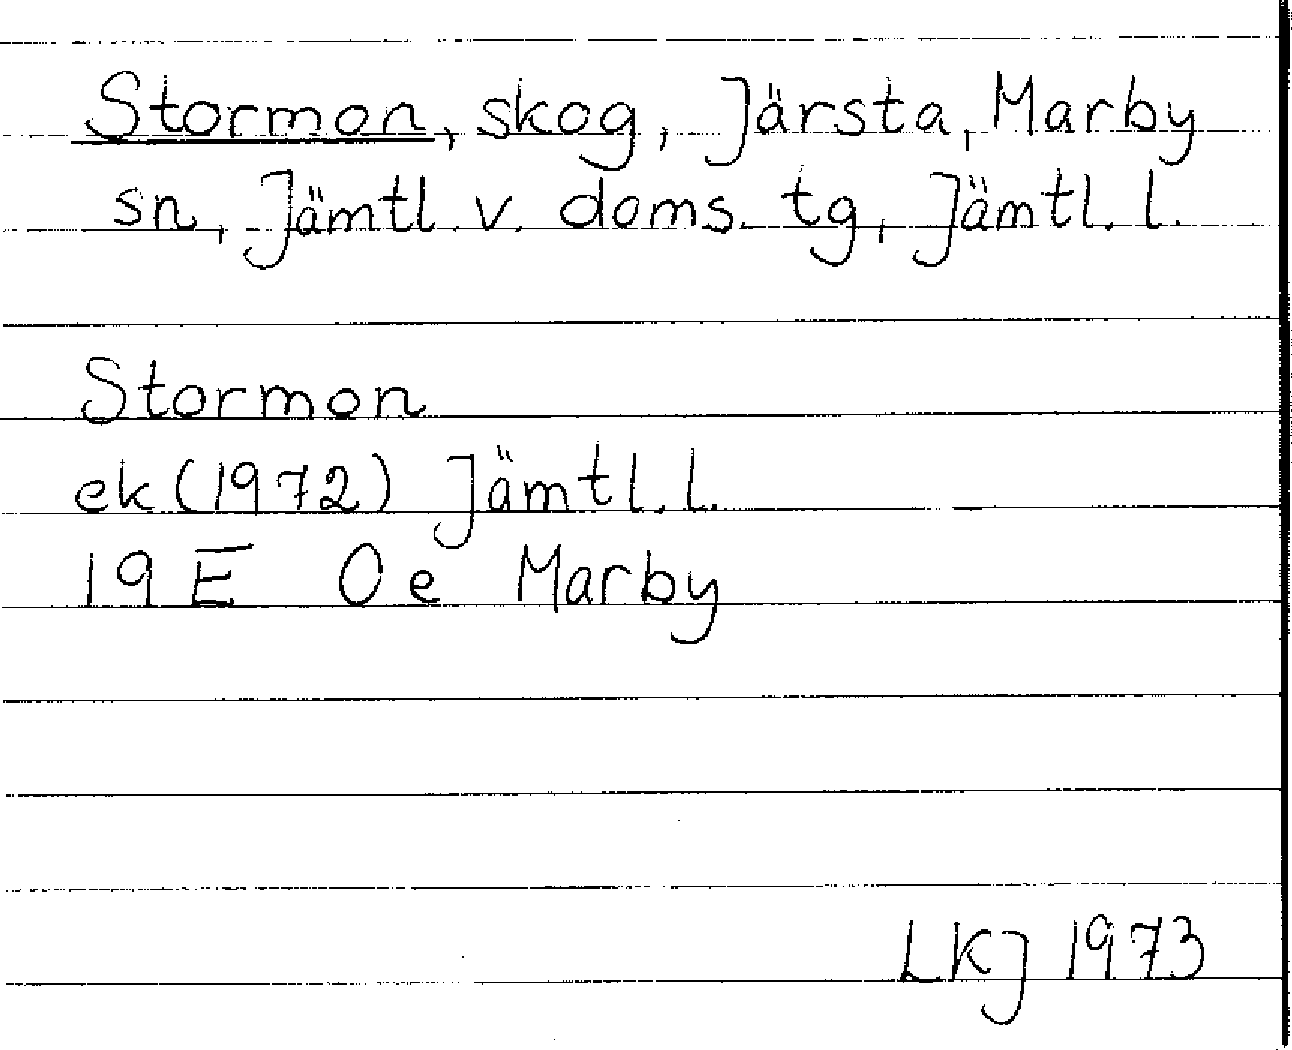 Stormon, skog, Järsta, Marby
sn, Jämtl. v. doms. tg, Jämtl. l.
Stormon
ek (1972) Jämtl. l.
19 E 0 e Marby
LKJ 1973